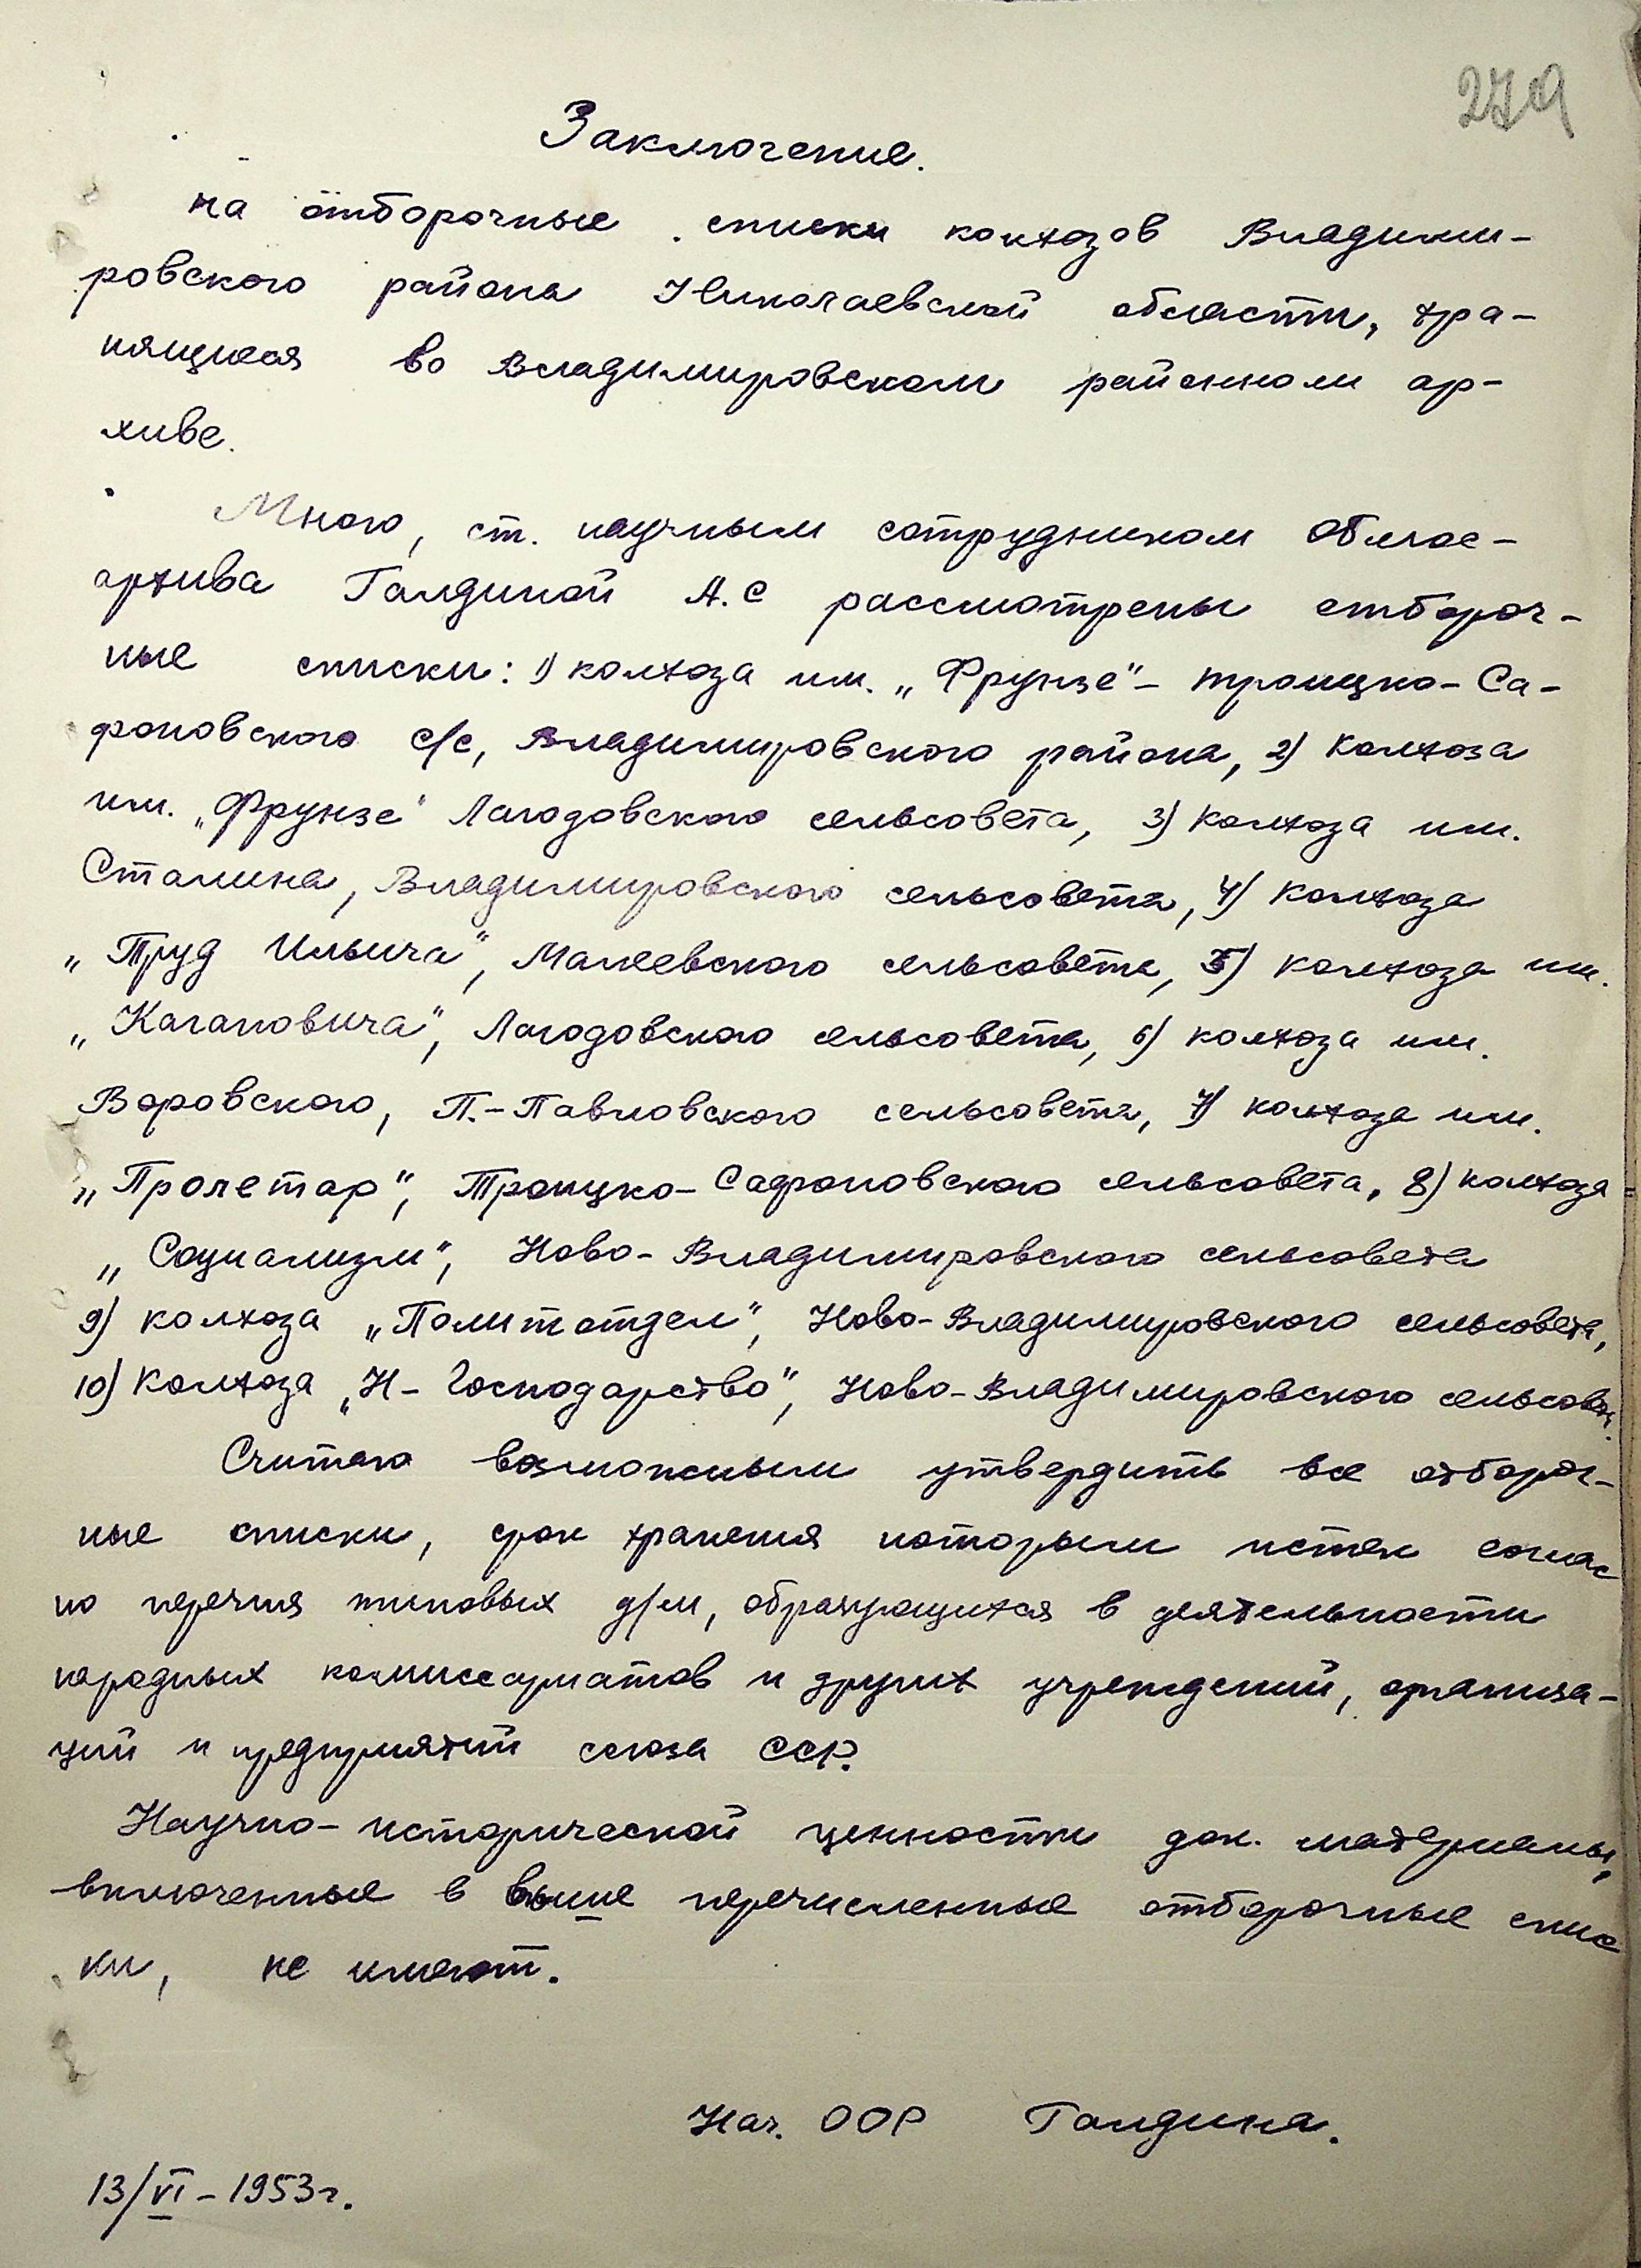 279
Заключение.
на отборочные списки колхозов Владими-
ровского района Николаевской области, хра-
нящиеся во Владимировском районном ар-
хиве.
Мною, ст. научным сотрудником облгос-
архива Галдиной А.С рассмотрены отбороч-
ные списки: 1) колхоза им. „Фрунзе" - троицко-Са-
фоновского с/с, Владимировского района, 2) колхоза
им. „Фрунзе" Лагодовского сельсовета, 3) колхоза им.
Сталина, Владимировского сельсовета, 4) колхоза
„Труд Ильича", Малеевского сельсовета, 5) колхоза им.
„Кагановича", Лагодовского сельсовета, 6) колхоза им.
Воровского, П.-Павловского сельсовета, 7) колхоза им.
„Пролетар", Троицко-Сафоновского сельсовета, 8) колхоза
„Социализм", Ново-Владимировского сельсовета
9) колхоза „Политотдел", Ново-Владимировского сельсовета,
10) колхоза „Н-Господарство", Ново-Владимировского сельсовет.
Считаю возможным утвердить все отбороч-
ные списки, срок хранения которым истек соглас
но перечня типовых д/м, образующихся в деятельности
народных комиссариатов и других учреждений, организа-
ций и предприятий союза ССР.
Научно-исторической ценности док. материалы,
включенные в выше перечисленные отборочные спис
ки, не имеют.
Нач. ООР Галдина.
13/VI - 1953 г.